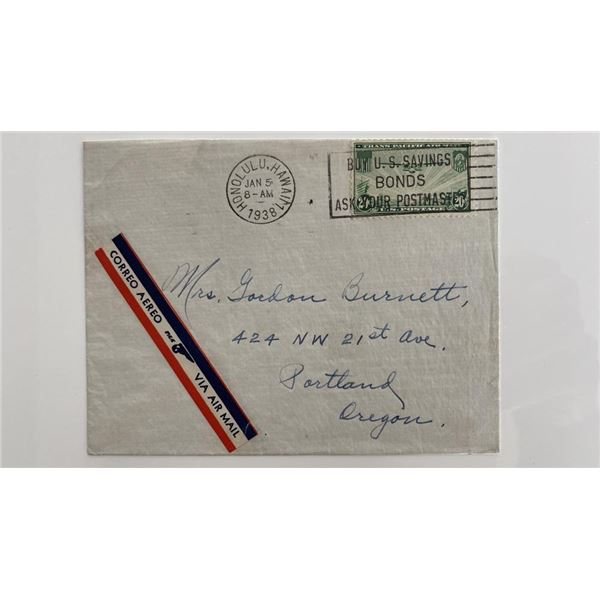 HONOLULU, HAWAII
JAN 5
8-AM
1938
TRANS-PACIFIC AIR MAIL
BUY U.S. SAVINGS
BONDS
ASK YOUR POSTMASTER
20 20
U.S. POSTAGE
CORREO AEREO PAA VIA AIR MAIL
Mrs. Gordon Burnett,
424 NW 21st Ave.
Portland
Oregon.